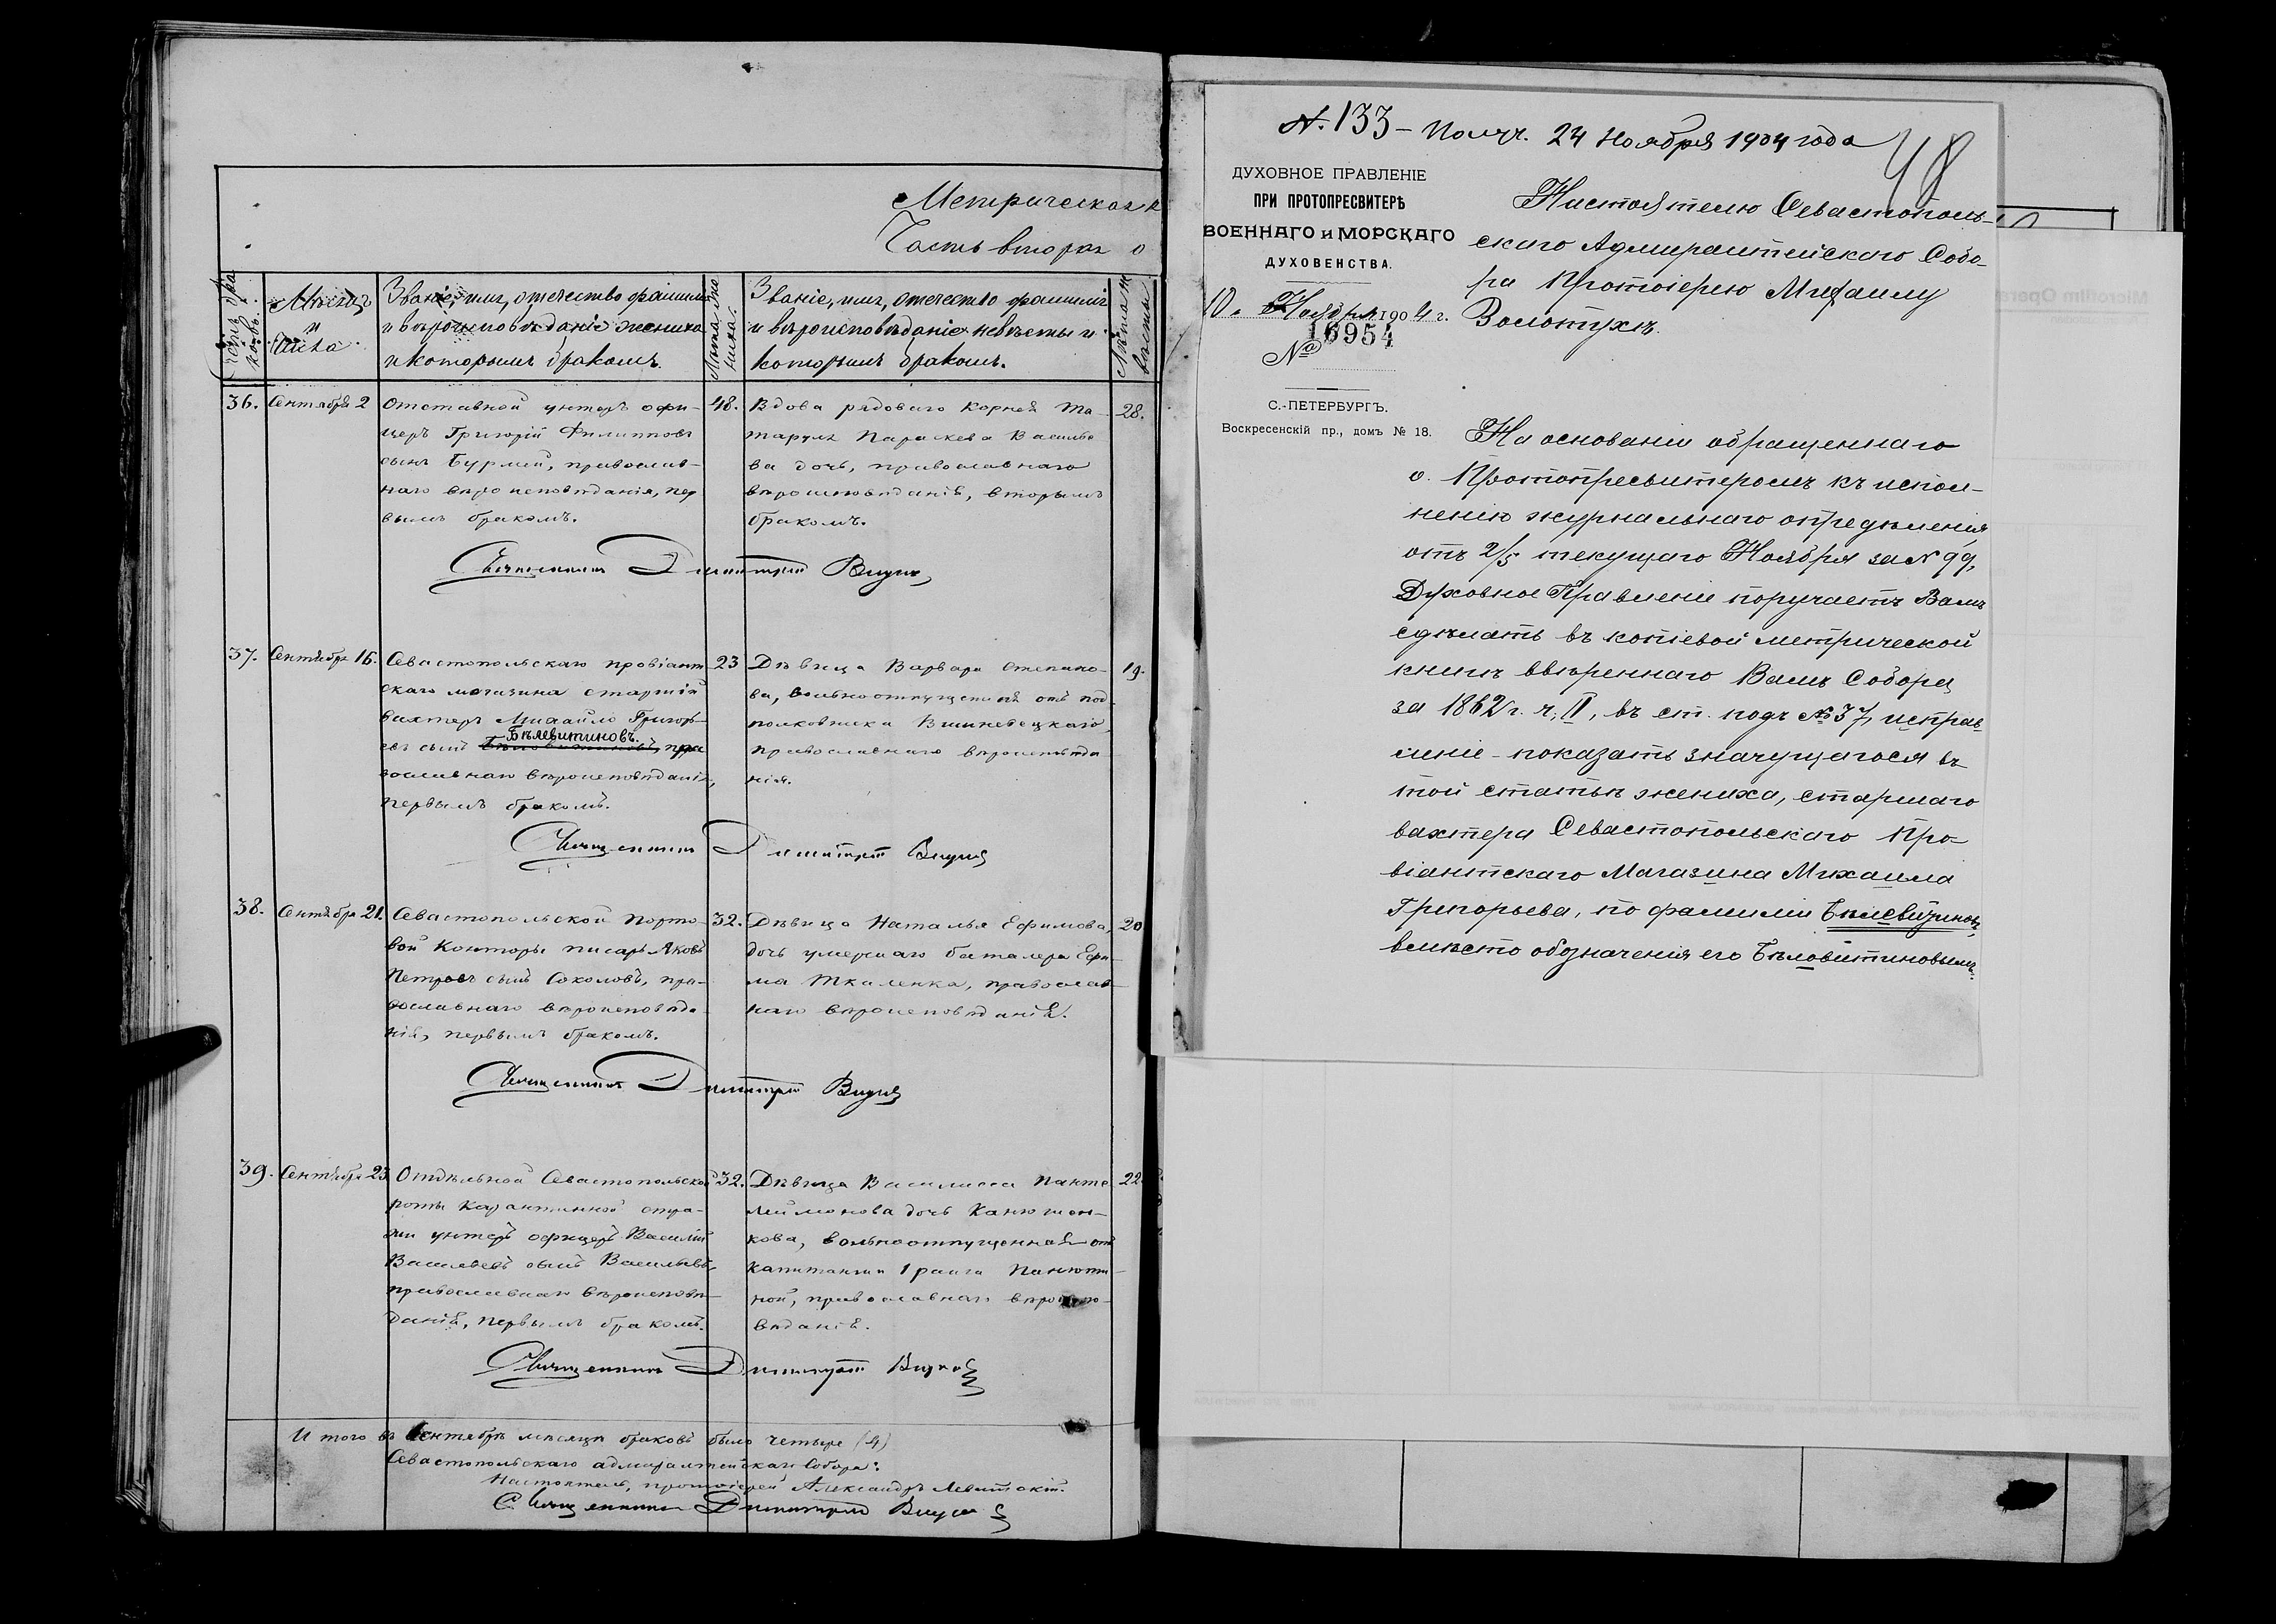 Метрическая
Часть вторая о
Счетъ бра
ковъ.
Мѣсяцъ
и
числа.
Званіе, имя, отечество фамилія
и вѣроисповѣданіе жениха
и которымъ бракомъ.
Лѣта же
ниха.
Званіе, имя, отечество фамилія
и вѣроисповѣданіе невѣсты и
которымъ бракомъ.
Лѣта не
вѣсты.
36.
Сентября 2
Отставной унтеръ офи-
церъ Григорій Филипповъ
сынъ Бурмей, православ-
наго вѣроисповѣданія, пер
вымъ бракомъ.
48.
Вдова рядоваго Корнея Та-
тарула Параскева Василье
ва дочь, православнаго
вѣроисповѣданія, вторымъ
бракомъ.
28.
Священникъ Димитрій
37.
Сентября 16.
Севастопольскаго провіант
скаго магазина старшій
вахтеръ Михайло Григорь-
евъ сынъ Бѣловитиновъ, пра
Бѣлевитиновъ.
вославнаго вѣроисповѣданія,
первымъ бракомъ.
23
Дѣвица Варвара Степано-
ва, вольноотпущенная отъ под-
полковника Вишневецкаго,
православнаго вѣроисповѣда
нія.
19.
Священникъ Димитрій
38.
Сентября 21.
Севастопольской Порто-
вой Конторы писарь Яковъ
Петровъ сынъ Соколовъ, пра-
вославнаго вѣроисповѣда-
нія, первымъ бракомъ.
32.
Дѣвица Наталья Ефимова,
дочь умершаго баталера Ефи-
ма Ткаленка, православ-
наго вѣроисповѣданія.
20
Священникъ Димитрій
39.
Сентября 23
Отдѣльной Севастопольской
роты Карантинной стра-
жи унтеръ офицеръ Василій
Васильевъ сынъ Васильевъ,
православнаго вѣроисповѣ-
данія, первымъ бракомъ.
32.
Дѣвица Василисса Панте
леймонова дочь
кова, вольноотпущенная отъ
капитанши 1 ранга Панюти-
ной, православнаго вѣроиспо-
вѣданія.
22
Священникъ Димитрій
И того въ Сентябрѣ мѣсяцѣ браковъ было четыре (4)
Севастопольскаго адмиралтейскаго Собора:
Настоятель, протоіерей Александръ Левитскій.
Священникъ Димитрій
№. 133 – Получ. 24 Ноября 1904 года
48
ДУХОВНОЕ ПРАВЛЕНІЕ
ПРИ ПРОТОПРЕСВИТЕРѢ
ВОЕННАГО и МОРСКАГО
ДУХОВЕНСТВА.
10. Ноября 1904 г.
16954
№
С.-ПЕТЕРБУРГЪ.
Воскресенскій пр., домъ № 18.
Настоятелю Севастополь-
скаго Адмиралтейскаго Собо-
ра Протоіерею Михаилу
Золотухѣ.
На основаніи обращеннаго
о. Протопресвитеромъ къ испол-
ненію журнальнаго опредѣленія
отъ 2/5 текущаго Ноября за № 99,
Духовное Правленіе поручаетъ Вамъ
сдѣлать въ копіевой метрической
книгѣ ввѣреннаго Вамъ Собора
за 1862 г. ч. II, въ ст. подъ № 37, исправ
леніе - показать значущагося въ
той статьѣ жениха, старшаго
вахтера Севастопольскаго Про-
віантскаго Магазина Михаила
Григорьева, по фамиліи Бѣлевитиновъ,
вмѣсто обозначенія его Бѣловитиновымъ.